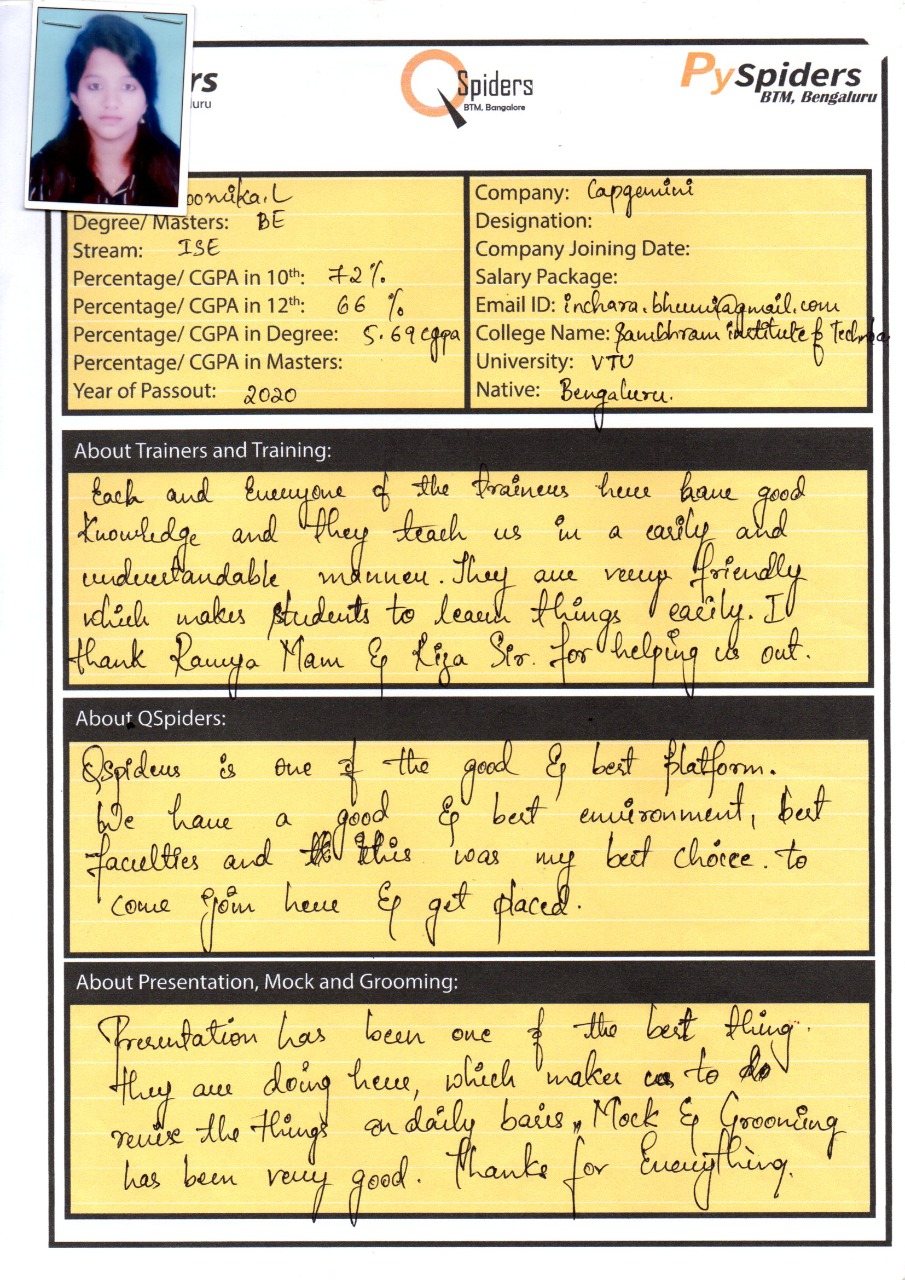 rs
luru
QSpiders
BTM, Bangalore
PySpiders
BTM, Bengaluru
oomika.L
Degree/ Masters: BE
Stream: ISE
Percentage/ CGPA in 10th: 72%
Percentage/ CGPA in 12th: 66 %
Percentage/ CGPA in Degree: 5.69cgpa
Percentage/ CGPA in Masters:
Year of Passout: 2020
Company: Capgemini
Designation:
Company Joining Date:
Salary Package:
Email ID: inchara.bhumi@gmail.com
College Name: Sambhram institute of
University: VTU
Native: Bengaluru.
About Trainers and Training:
Each and Everyone of the trainers here have good
knowledge and they teach us in a easily and
understandable manner. They are very friendly
which makes students to learn things easily. I
thank Ramya Mam & Riza Sir. for helping us out.
About QSpiders:
QSpiders is one of the good & best platform.
We have a good & best environment, best
faculties and this was my best choice. to
come join here & get placed.
About Presentation, Mock and Grooming:
Presentation has been one of the best thing.
they are doing here, which makes us to do
revise the things on daily basis, Mock & Grooming
has been very good. Thanks for Everything.